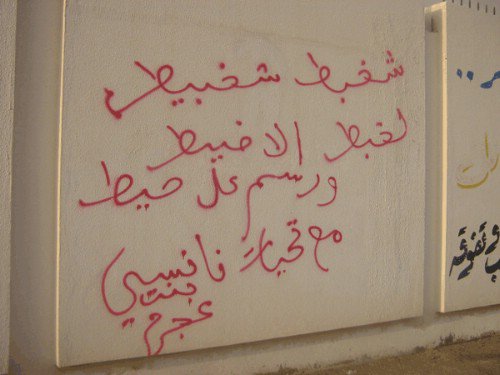 شخبط شخبيط
لخبط الاخبيط
ورسم عل حيط
مع تحيات فانسي
بنت
عجرم